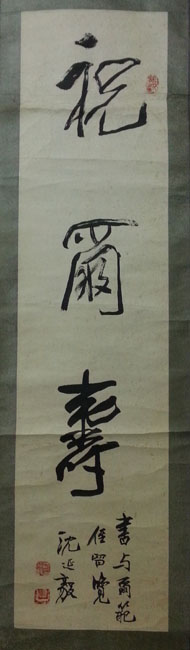 祝爾壽
書与爾範
侄留覽
沈延毅